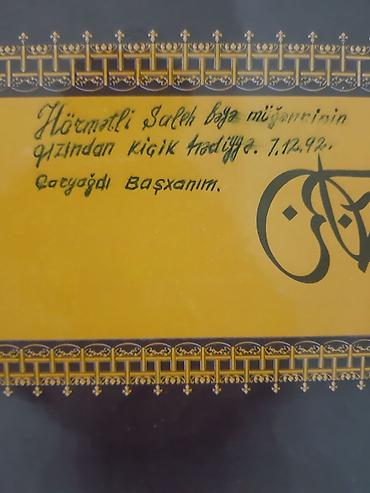 Hörmətli Saleh bəyə müğənninin
qızından kiçik hədiyyə. 7.12.92.
Caryağdı Başxanım.